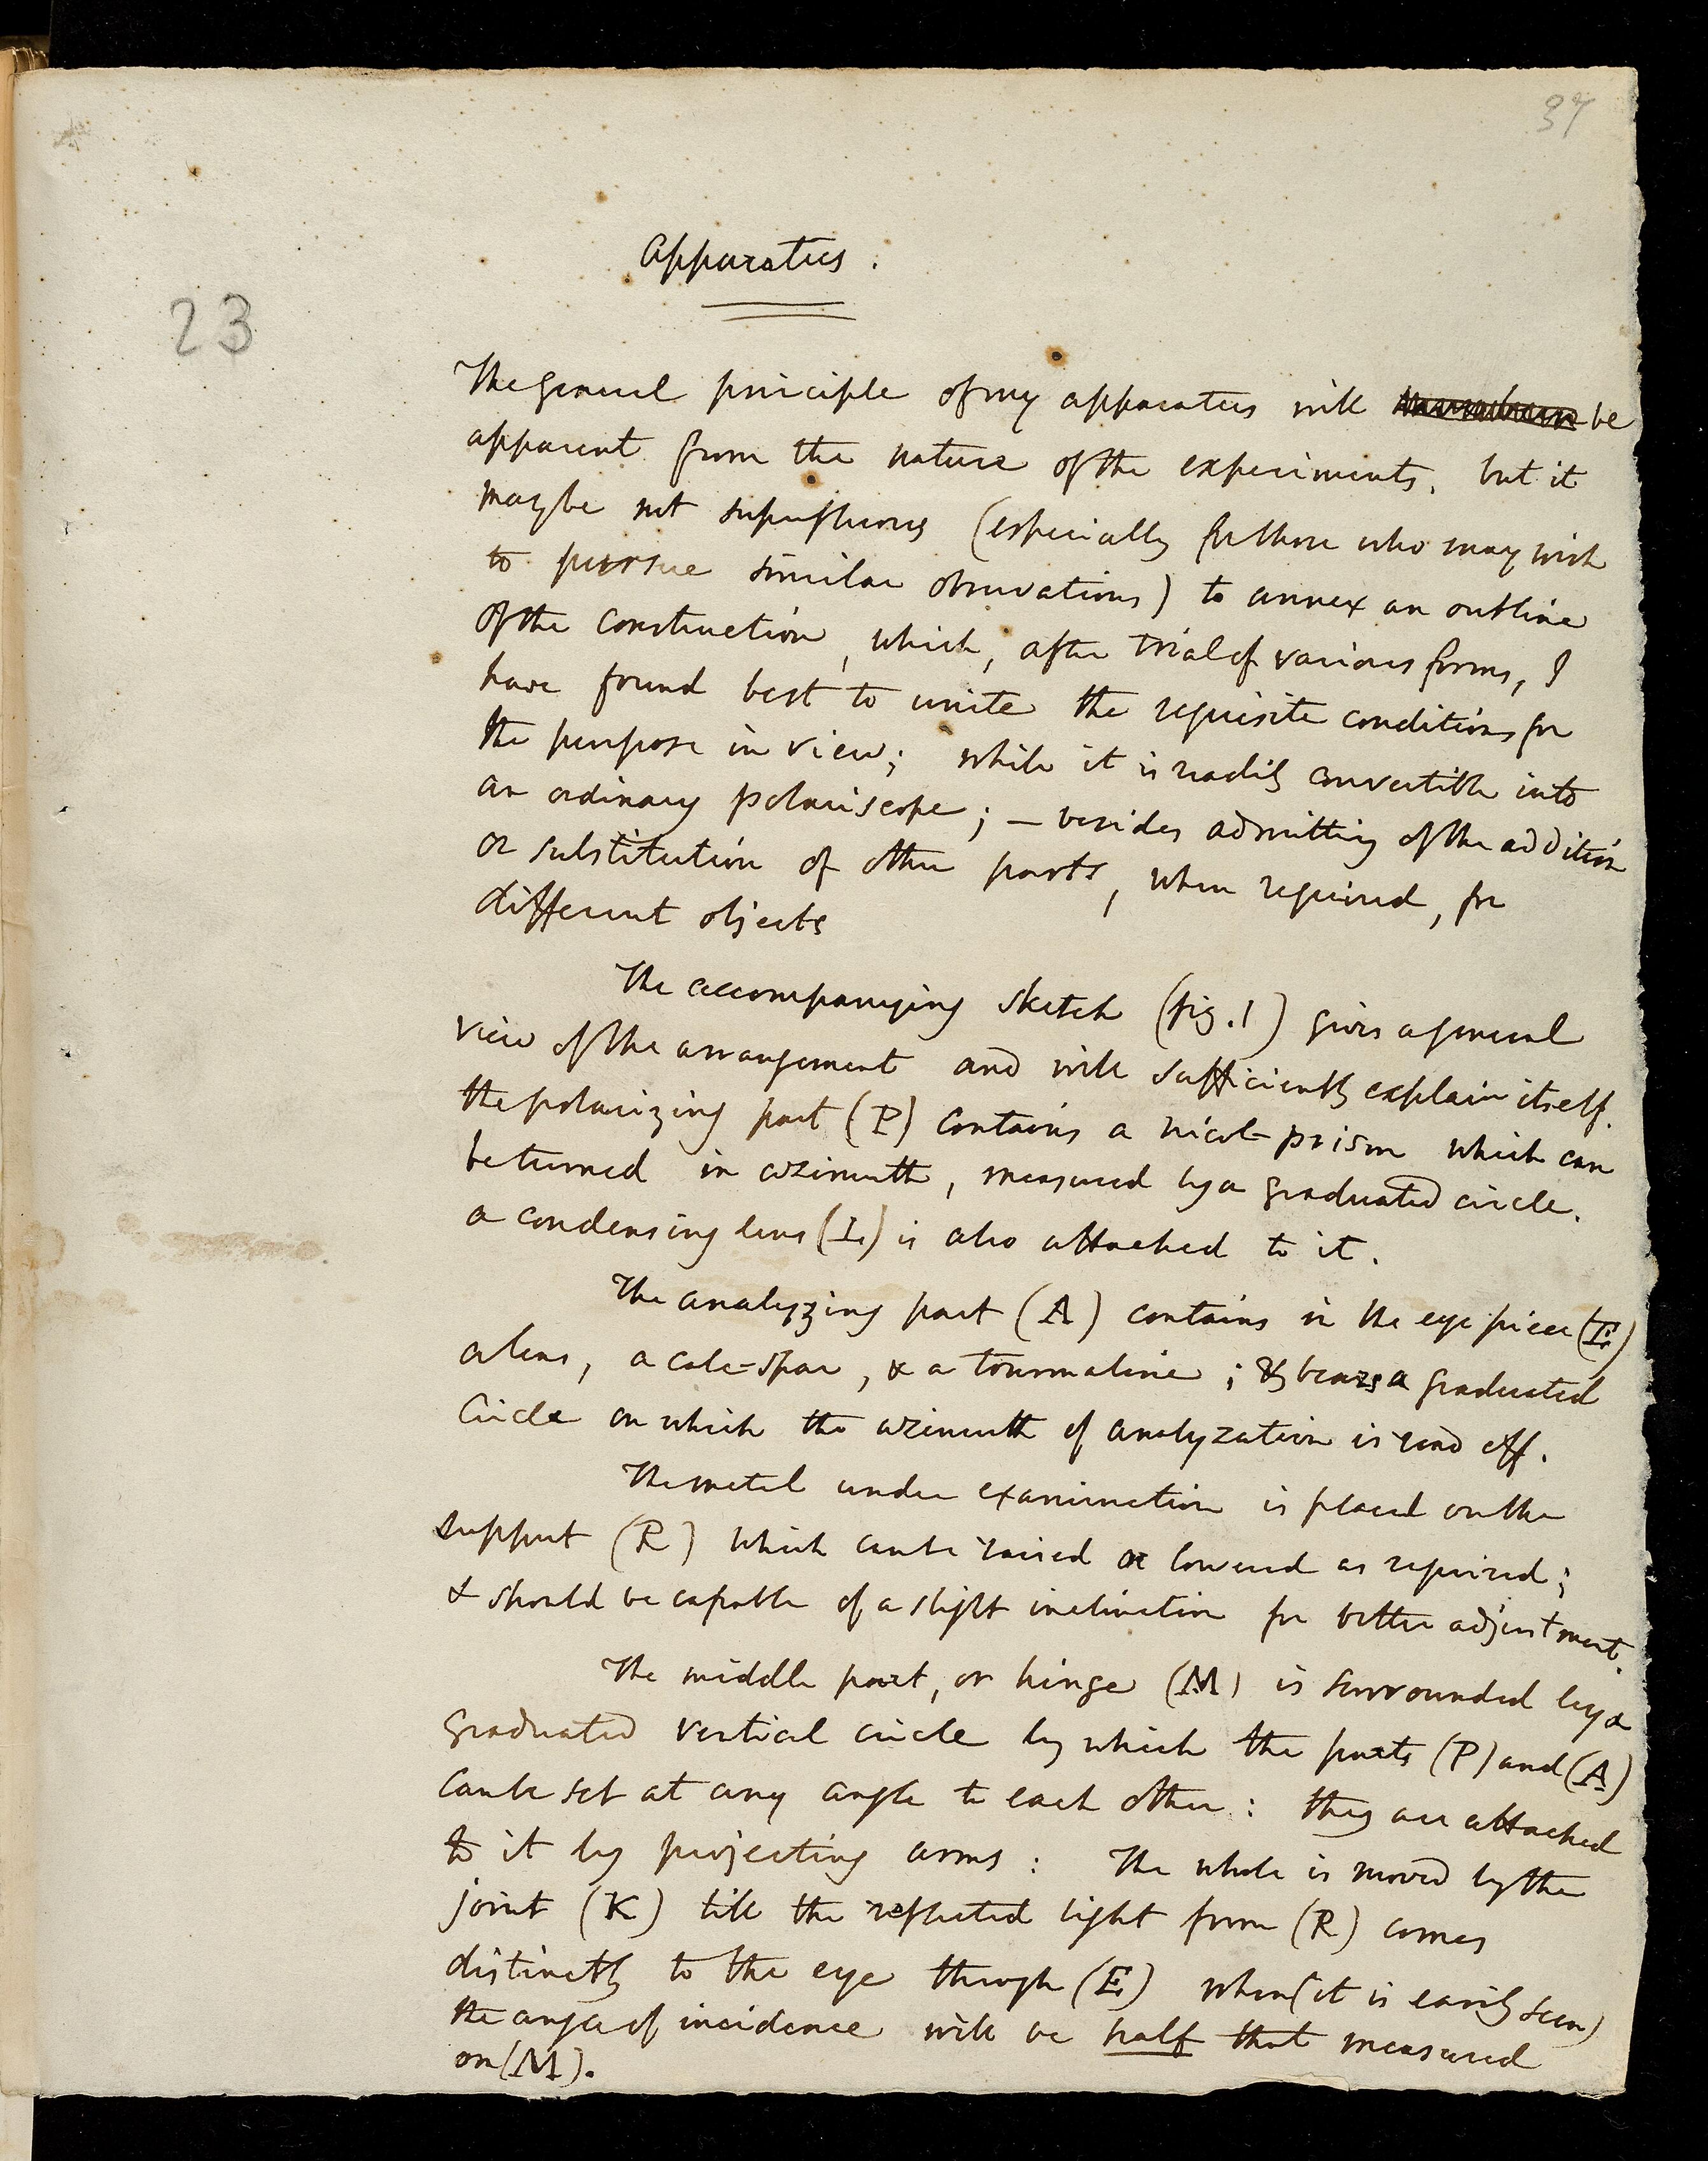 37
Apparatus.
23
The general principle of my apparatus will be
apparent from the nature of the experiments, but it
may be not superfluous (especially for those who may wish
to pursue similar observations) to annex an outline
of the construction, which, after trial of various forms, I
have found best to unite the requisite conditions for
the purpose in view; while it is readily convertible into
an ordinary polariscope; — besides admitting of the addition
or substitution of other parts, when required, for
different objects
The accompanying sketch (fig. 1) gives a general
view of the arrangement and will sufficiently explain itself.
the polarizing part (P) contains a nicol-prism which can
be turned in azimuth, measured by a graduated circle.
a condensing lens (L) is also attached to it.
The analyzing part (A) contains in the eye piece (E)
a lens, a calc-spar, & a tourmaline; & bears a graduated
Circle on which the azimuth of analyzation is read off.
The metal under examination is placed on the
support (R) which can be raised or lowered as required;
& should be capable of a slight inclination for better adjustment.
The middle part, or hinge (M) is surrounded by a
graduated vertical circle by which the parts (P) and (A)
can be set at any angle to each other: they are attached
to it by projecting arms: The whole is moved by the
joint (K) till the reflected light from (R) comes
distinctly to the eye through (E) when (it is easily seen)
the angle of incidence will be half that measured
on (M).